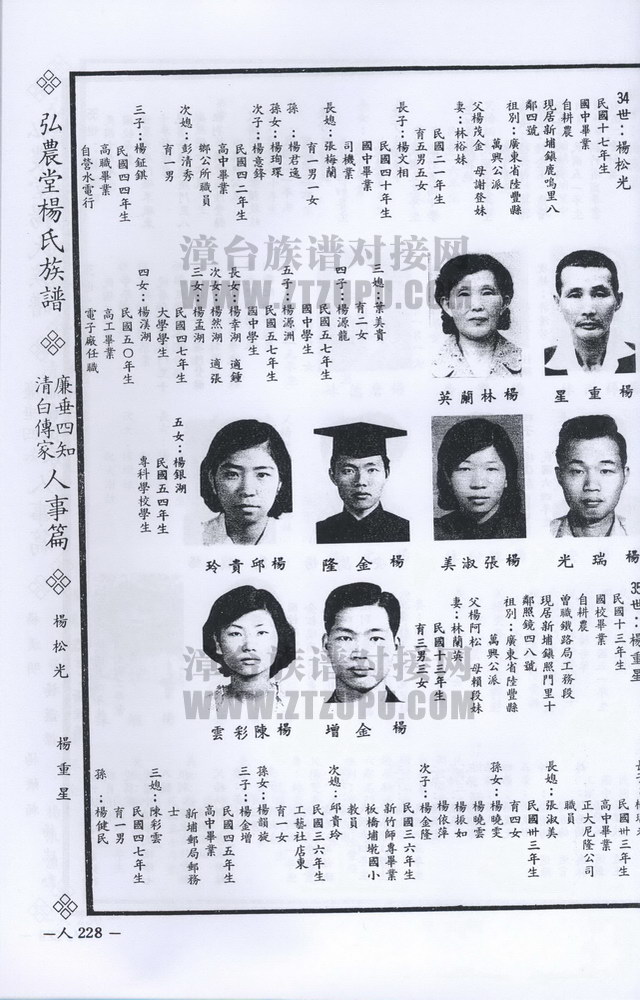 34世：楊松光
民國十七年生
國中畢業
自耕農
現居新埔鎮鹿鳴里八
鄰四號
祖別：廣東省陸豐縣
萬興公派
父楊茂金　母謝登妹
妻：林裕妹
民國二一年生
育五男五女
長子：楊文相
民國四十年生
國中畢業
司機業
長媳：張梅蘭
育一男一女
孫：楊君逸
孫女：楊珣琛
次子：楊意鋒
民國四二年生
高中畢業
鄉公所職員
次媳：彭清秀
育一男
三子：楊鉦錤
民國四四年生
高職畢業
自營水電行
三媳：葉美貴
育二女
四子：楊源龍
民國五七年生
國中學生
五子：楊源洲
民國五七年生
國中學生
長女：楊幸湖　適鍾
次女：楊然湖　適張
三女：楊孟湖
民國四七年生
大學學生
四女：楊漢湖
民國五〇年生
高工畢業
電子廠任職
五女：楊銀湖
民國五四年生
專科學校學生
楊重星
楊林蘭英
楊瑞光
楊張淑美
楊金隆
楊邱貴玲
楊金增
楊陳彩雲
35世：楊重星
民國十三年生
國校畢業
自耕農
曾職鐵路局工務段
現居新埔鎮照門里十
鄰照鏡四八號
祖別：廣東省陸豐縣
萬興公派
父楊阿松　母賴段妹
妻：林蘭英
民國十三年生
育三男三女
民國卅三年生
高中畢業
正大尼隆公司
職員
長媳：張淑美
民國卅三年生
育四女
孫女：楊曉雯
楊曉雲
楊振如
楊依萍
次子：楊金隆
民國三六年生
新竹師專畢業
板橋埔墘國小
教員
次媳：邱貴玲
民國三六年生
工藝社店東
育一女
孫女：楊韻旋
三子：楊金增
民國四五年生
高中畢業
新埔郵局郵務
士
三媳：陳彩雲
民國四七年生
育一男
孫：楊健民
弘農堂楊氏族譜
廉垂四知
清白傳家
人事篇
楊松光
楊重星
—人228—
漳台族谱对接网
WWW.ZTZUPU.COM
漳台族谱对接网
WWW.ZTZUPU.COM